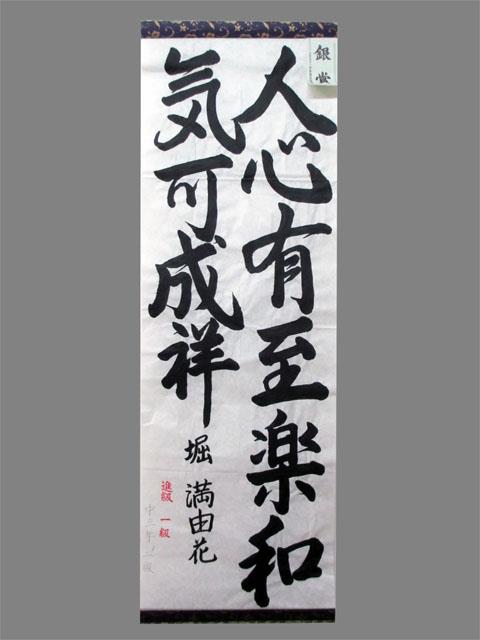 銀賞
人心有至楽和
気可成祥
堀満由花
進級 一級
中三年 一級